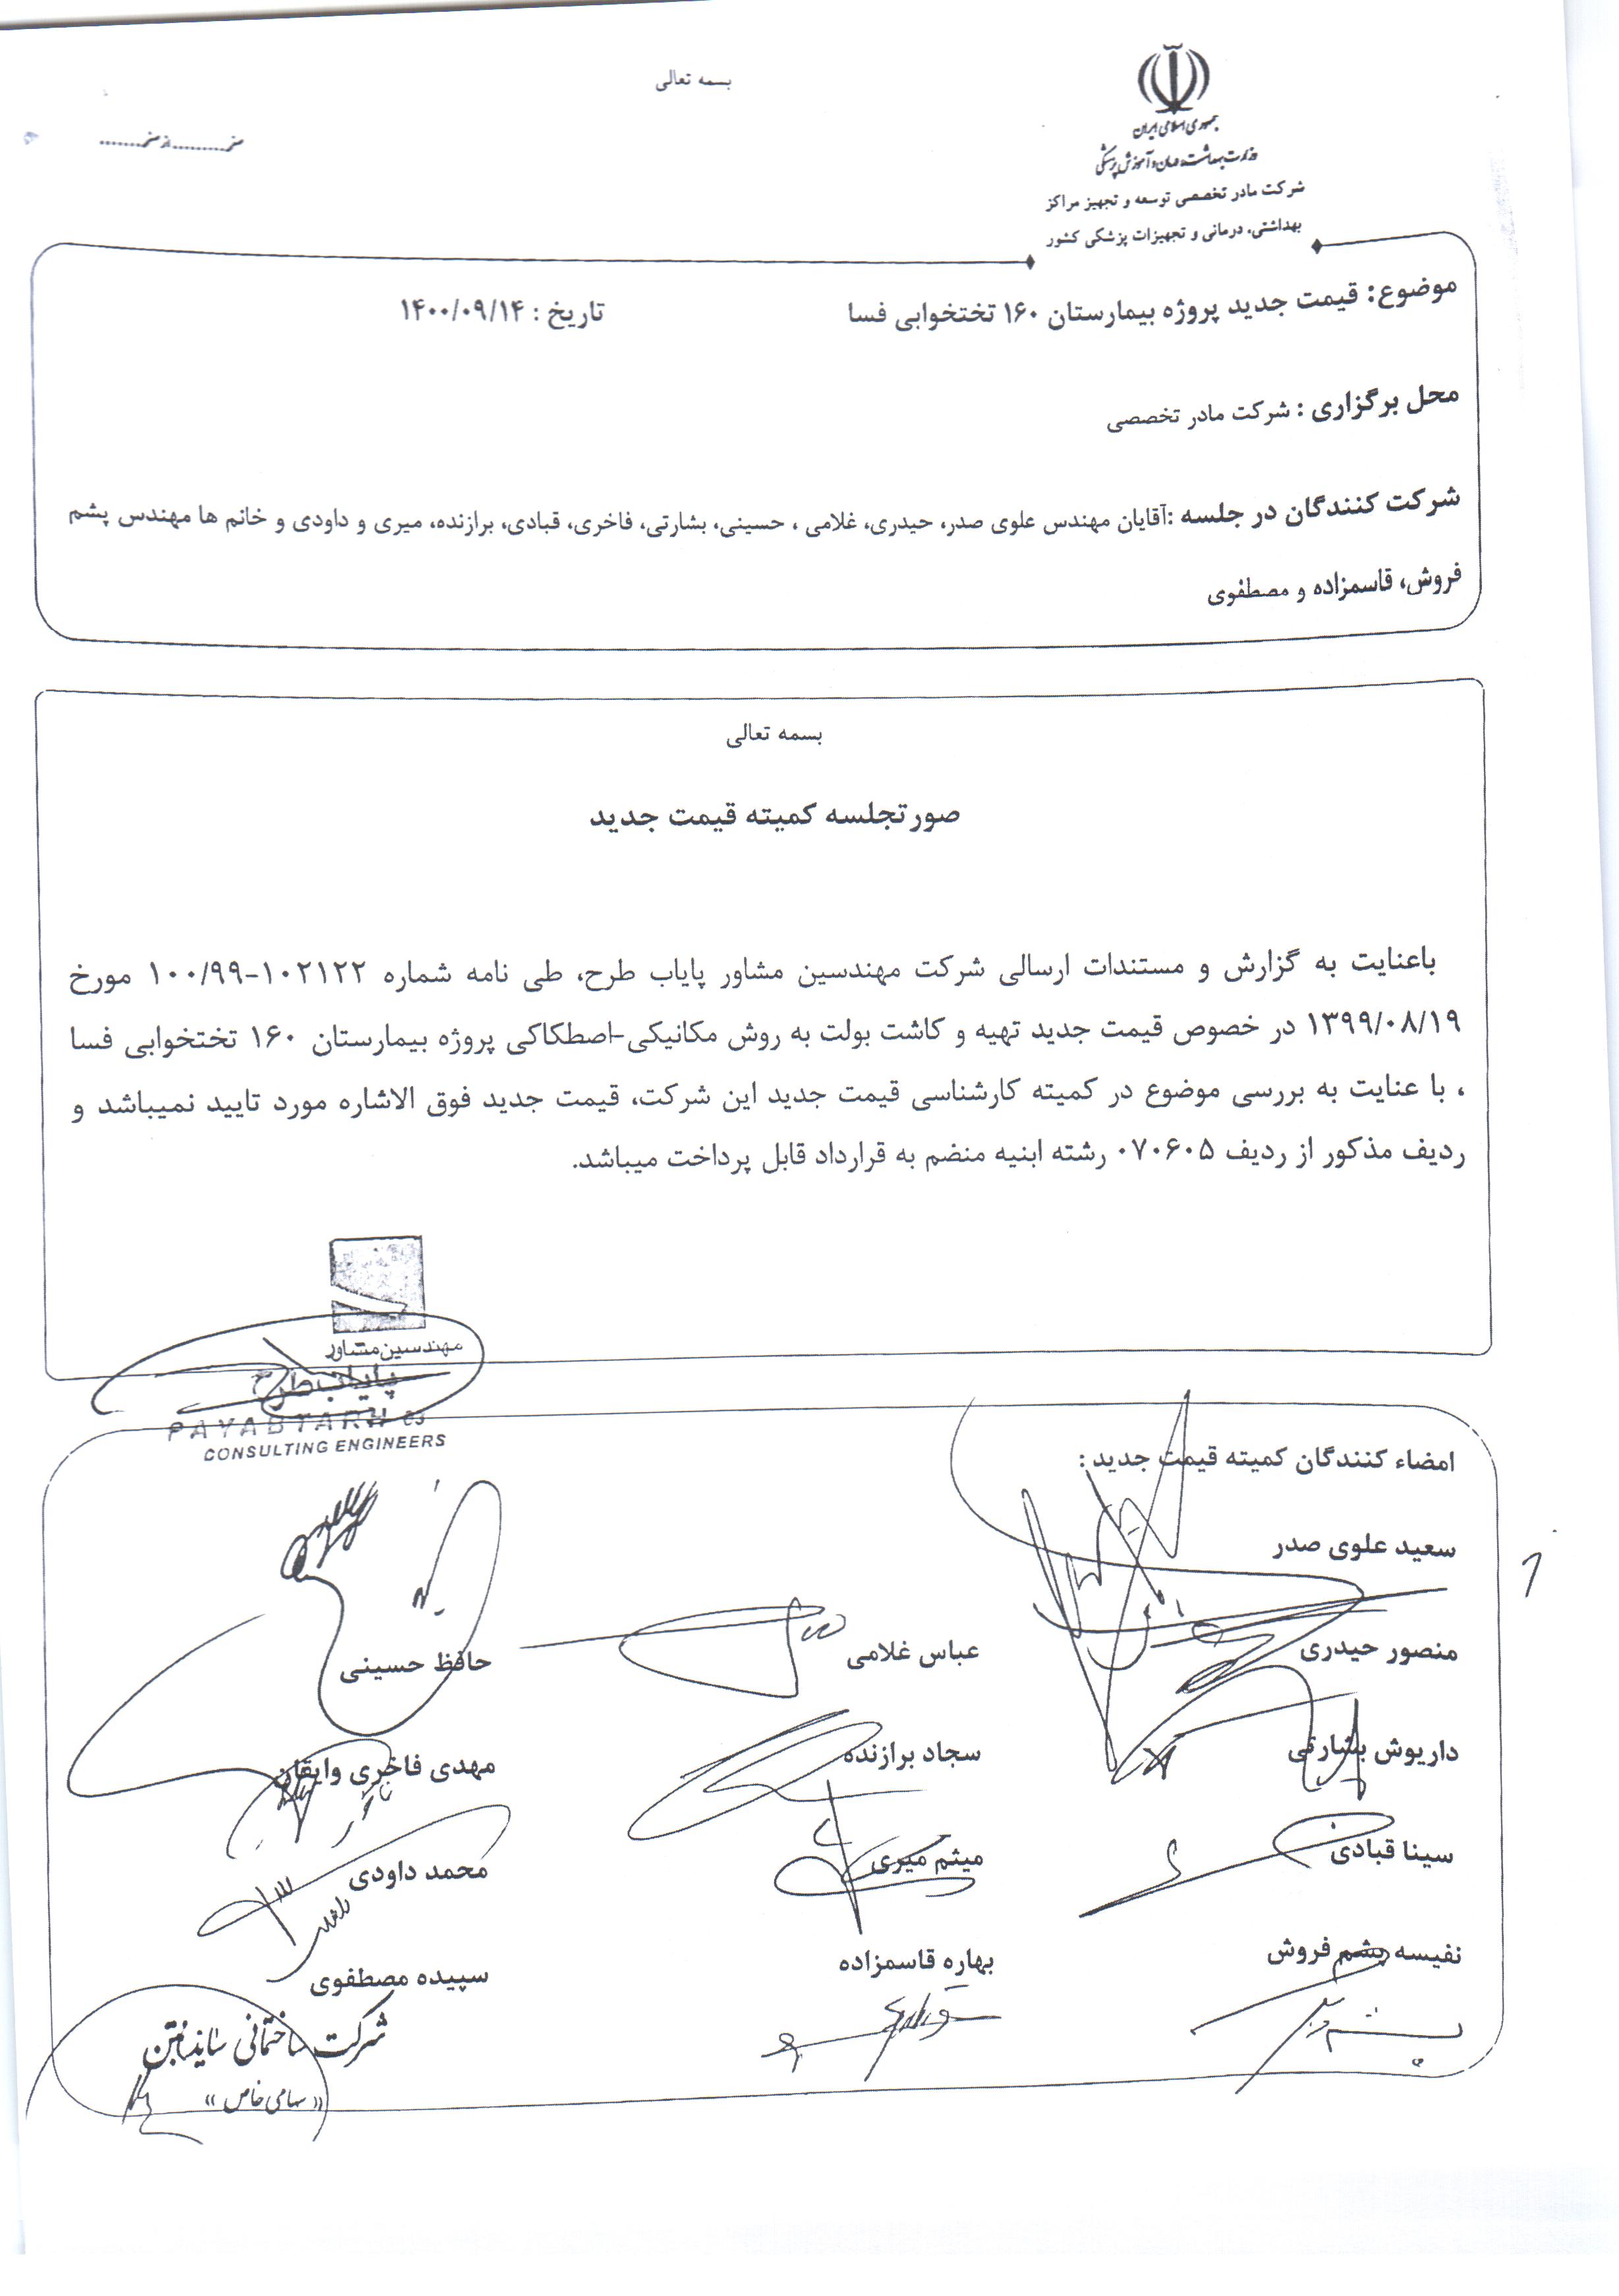 بسمه تعالی
جمهوری اسلامی ایران
وزارت بهداشت، درمان و آموزش پزشکی
شرکت مادر تخصصی توسعه و تجهیز مراکز
بهداشتی، درمانی و تجهیزات پزشکی کشور
موضوع: قیمت جدید پروژه بیمارستان ۱۶۰ تختخوابی فسا
تاریخ : ۱۴۰۰/۰۹/۱۴
محل برگزاری : شرکت مادر تخصصی
شرکت کنندگان در جلسه :آقایان مهندس علوی صدر، حیدری، غلامی ، حسینی، بشارتی، فاخری، قبادی، برازنده، میری و داودی و خانم ها مهندس پشم
فروش، قاسمزاده و مصطفوی
بسمه تعالی
صورتجلسه کمیته قیمت جدید
باعنایت به گزارش و مستندات ارسالی شرکت مهندسین مشاور پایاب طرح، طی نامه شماره ۱۰۲۱۲۲-۱۰۰/۹۹ مورخ
۱۳۹۹/۰۸/۱۹ در خصوص قیمت جدید تهیه و کاشت بولت به روش مکانیکی-اصطکاکی پروژه بیمارستان ۱۶۰ تختخوابی فسا
، با عنایت به بررسی موضوع در کمیته کارشناسی قیمت جدید این شرکت، قیمت جدید فوق الاشاره مورد تایید نمیباشد و
ردیف مذکور از ردیف ۰۷۰۶۰۵ رشته ابنیه منضم به قرارداد قابل پرداخت میباشد.
مهندسین مشاور
پایاب طرح
PAYABTARH CO
CONSULTING ENGINEERS
امضاء کنندگان کمیته قیمت جدید :
سعید علوی صدر
منصور حیدری
عباس غلامی
حافظ حسینی
داریوش بشارتی
سجاد برازنده
مهدی فاخری وایقان
سینا قبادی
میثم میری
محمد داودی
نفیسه پشم فروش
بهاره قاسمزاده
سپیده مصطفوی
شرکت ساختمانی
«سهامی خاص»